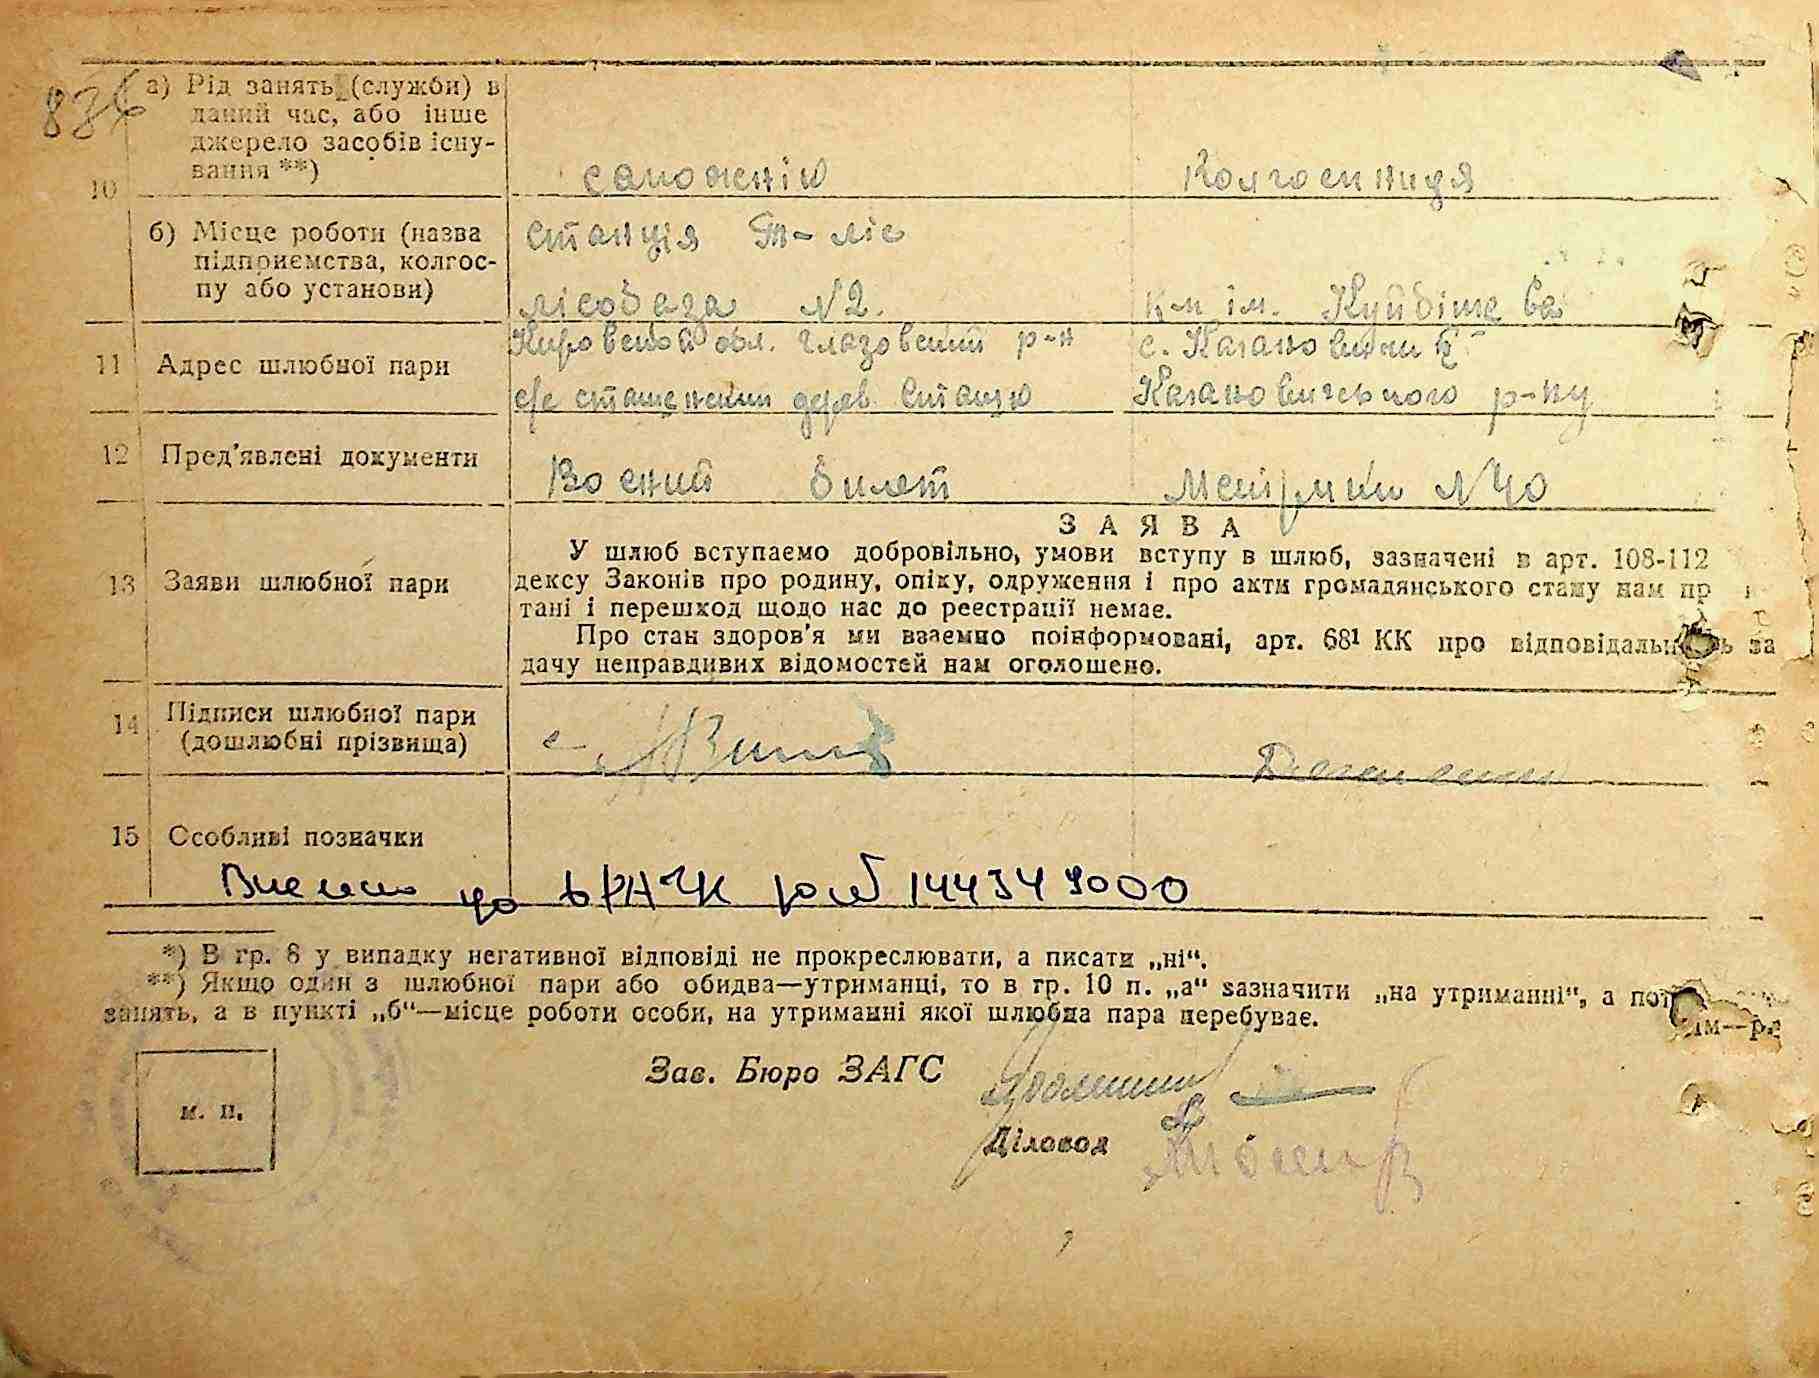 836
а) Рід занять (служби) в
даний час, або інше
джерело засобів існу-
вання **)
10
сапожнік
Колгосниця
б) Місце роботи (назва
підприємства, колгос-
пу або установи)
станція
ліс
лісобаза N2.
К-п ім. Куйбішева
11 Адрес шлюбної пари
Кировской обл. Глазовский р-н
с/с дерев.
с. Каганович
Кагановичського р-ну
12 Пред'явлені документи
Воений билет
Метірики N40
З А Я В А
13 Заяви шлюбної пари
У шлюб вступаємо добровільно, умови вступу в шлюб, зазначені в арт. 108-112
дексу Законів про родину, опіку, одруження і про акти громадянського стану нам пр
тані і перешкод щодо нас до реєстрації немає.
Про стан здоров'я ми взаємно поінформовані, арт. 68¹ КК про відповідальність за
дачу неправдивих відомостей нам оголошено.
14 Підписи шлюбної пари
(дошлюбні прізвища)
15 Особливі позначки
Внесено до ДРАЦС 144349000
*) В гр. 8 у випадку негативної відповіді не прокреслювати, а писати „ні“.
**) Якщо один з шлюбної пари або обидва—утриманці, то в гр. 10 п. „а“ зазначити „на утриманні“, а пот
занять, а в пункті „б“—місце роботи особи, на утриманні якої шлюбна пара перебуває.
Зав. Бюро ЗАГС
м. п.
Діловод